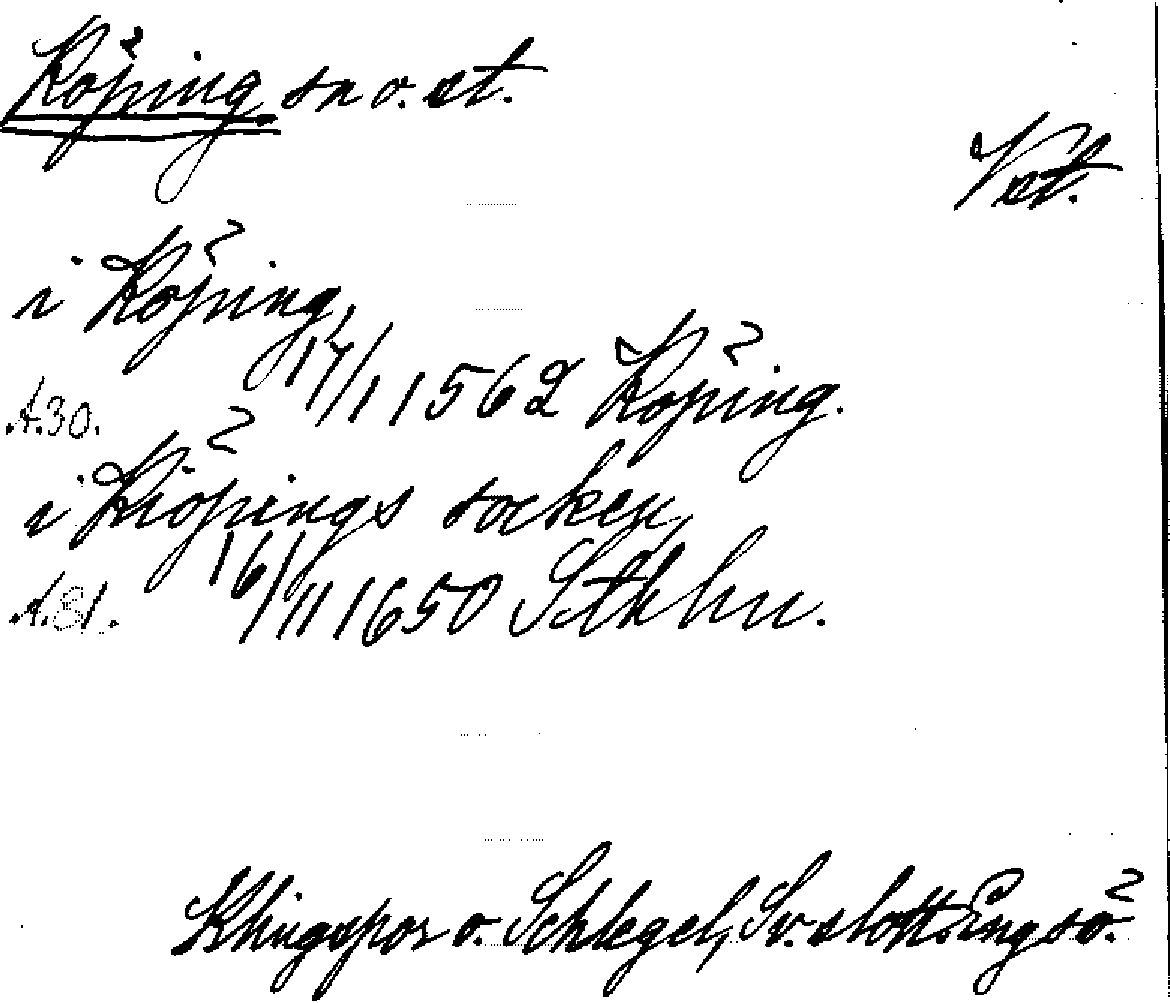 Köping sn o. st.
Vst.
i Köping,
A.30. 17/1 1562 Köping.
i Kiöpings socken,
A.31. 16/11 1650 Sthlm.
Klingspor o. Schlegel, Sv. slott. Engsö.